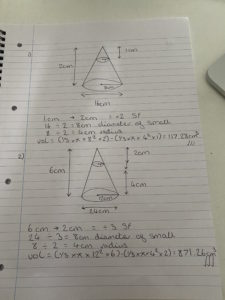 1)
1cm
2cm
16cm
1cm → 2cm = ÷2 SF
16 ÷ 2 = 8cm diameter of small
8 ÷ 2 = 4cm radius
vol = (⅓ × π × 8² × 2) - (⅓ × π × 4² × 1) = 117.29cm³
2)
6cm
2cm
4cm
12cm
24cm
6cm → 2cm = ÷3 SF
24 ÷ 3 = 8cm diameter of small
8 ÷ 2 = 4cm radius
vol = (⅓ × π × 12² × 6) - (⅓ × π × 4² × 2) = 871.26cm³